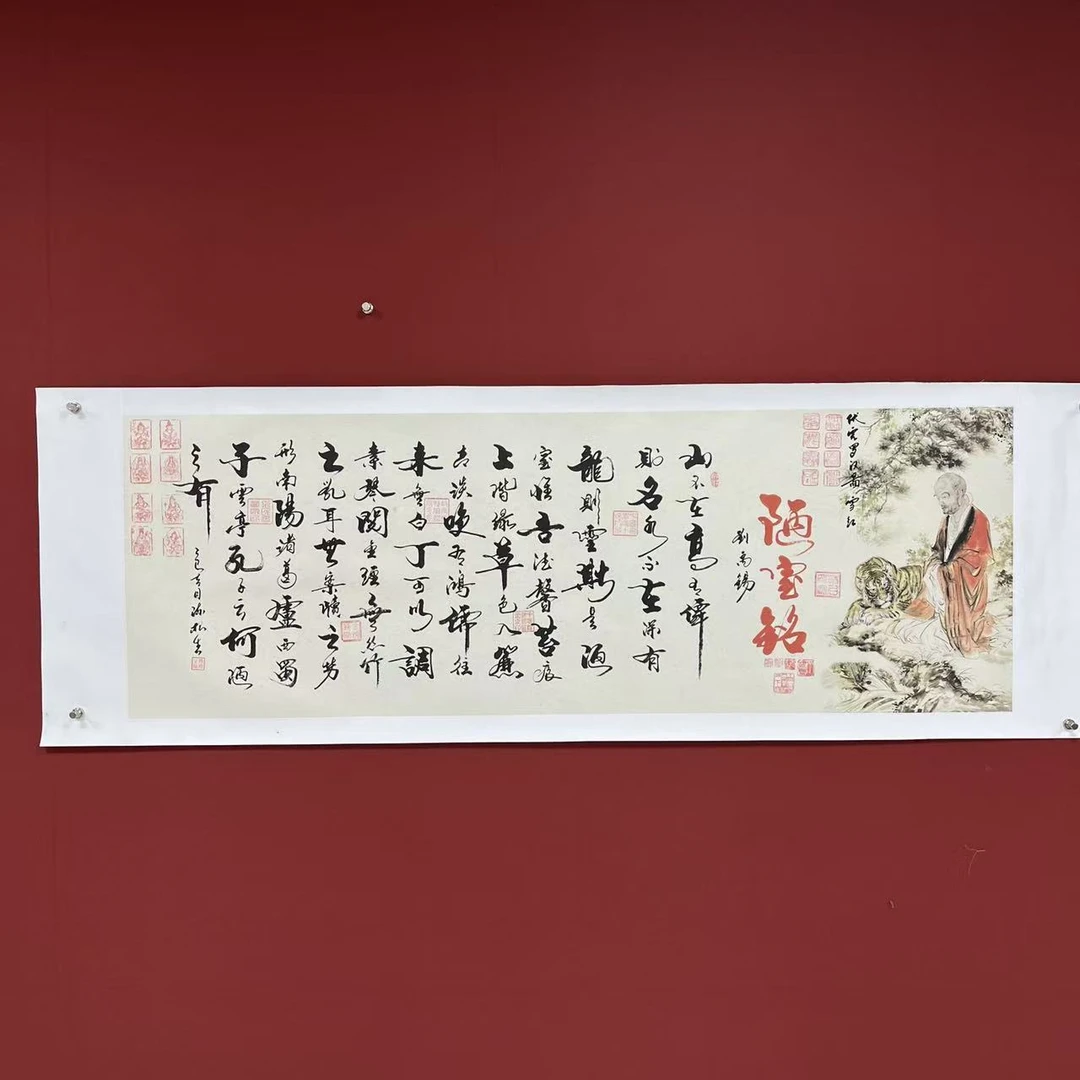 伏虎罗汉
陋室銘
劉禹錫
山不在高有僊
則名水不在深有
龍則靈斯是陋
室惟吾德馨苔痕
上階綠草色入簾
青談笑有鴻儒往
来無白丁可以調
素琴閱金經無絲竹
之亂耳無案牘之勞
形南陽諸葛廬西蜀
子雲亭孔子云何陋
之有